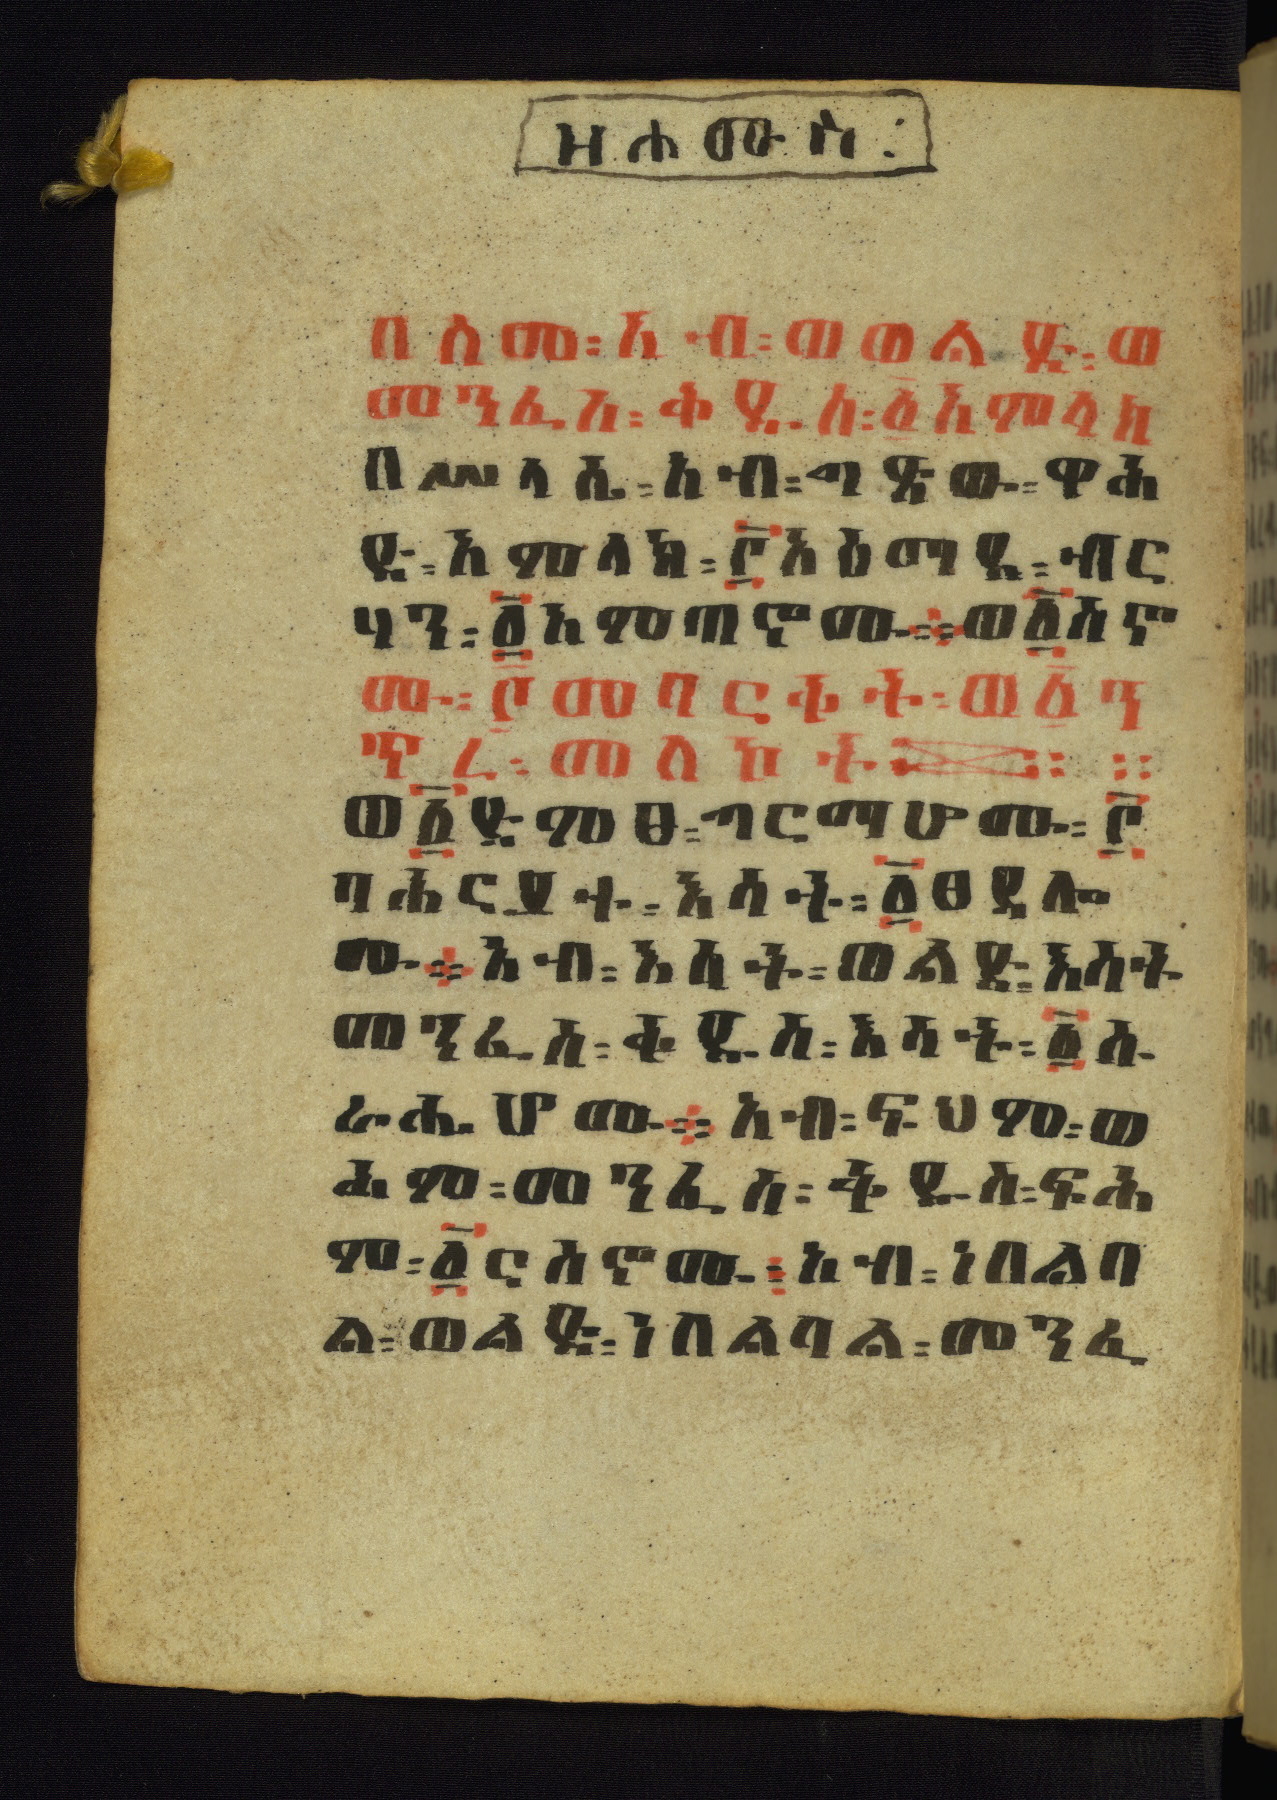 ዘሐሙስ፡
በስመ፡ አብ፡ ወወልድ፡ ወ
መንፈስ፡ ቅዱስ፡ ፩አምላክ
በሥላሴ፡ አብ፡ ጫድው፡ ዋሕ
ድ፡ አምላክ፡ ፫አዕማዱ፡ ብር
ሃን፡ ፩አምጠኖሙ። ወ፩ስኖ
ሙ፡ ፫መባርቅት፡ ወ፩ን
ጽረ፡ መለኮት። ።
ወ፩ድምፀ፡ ጎርማሆሙ፡ ፫
ባሕርያት፡ እሳት፡ ፩ፀዳሎ
ሙ። አብ፡ እሳት፡ ወልድ፡ እሳት
መንፈስ፡ ቅዱስ፡ እሳት፡ ፩ሱ
ራሑሆሙ። አብ፡ ፍህም፡ ወ
ሕም፡ መንፈስ፡ ቅዱስ፡ ፍሕ
ም፡ ፩ርስኖሙ፤ አብ፡ ነበልባ
ል፡ ወልድ፡ ነበልባል፡ መንፈ